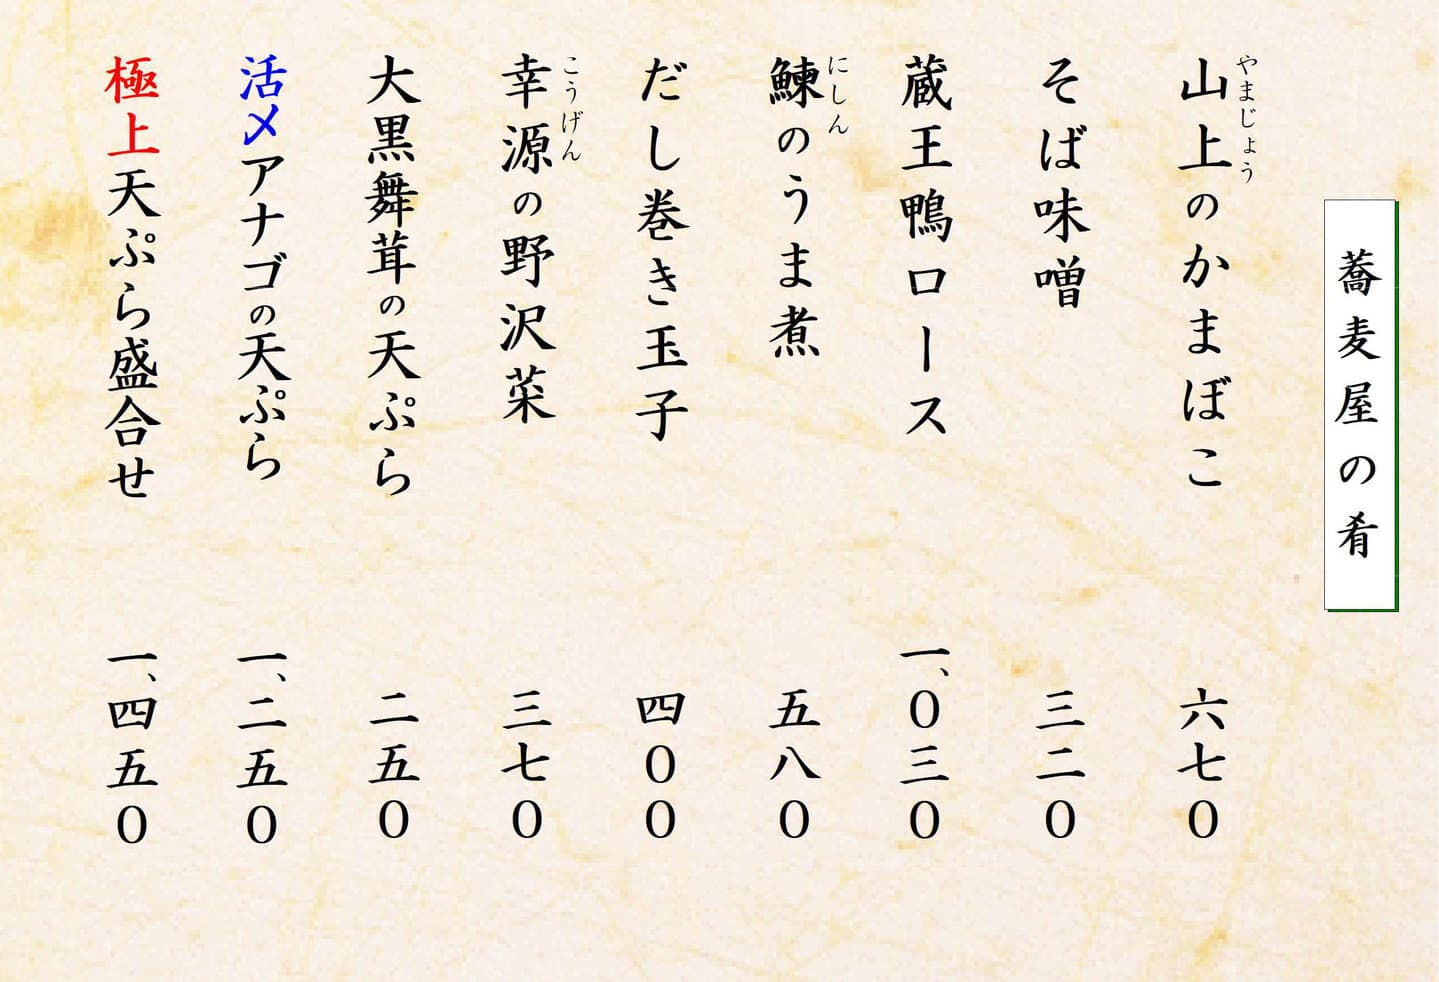 蕎麦屋の肴
やまじょう
山上のかまぼこ 六七０
そば味噌 三二０
蔵王鴨ロース 一、０三０
にしん
鰊のうま煮 五八０
だし巻き玉子 四００
こうげん
幸源の野沢菜 三七０
大黒舞茸の天ぷら 二五０
活〆アナゴの天ぷら 一、二五０
極上天ぷら盛合せ 一、四五０